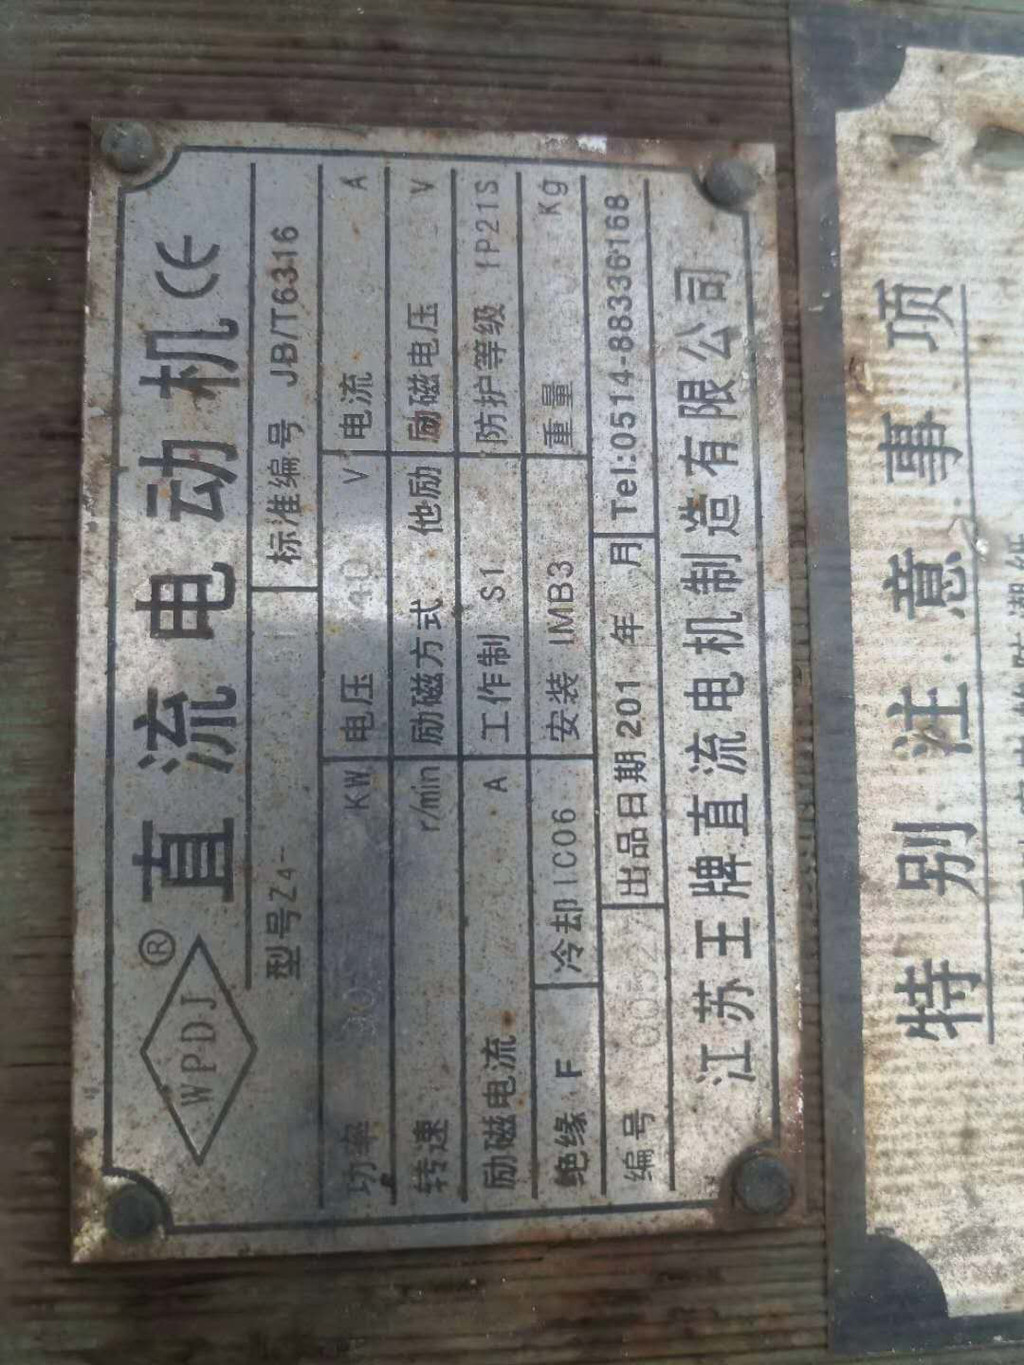 WPDJ ® 直流电动机 CE
型号Z4- 标准编号 JB/T6316
功率 KW 电压 V 电流 A
转速 r/min 励磁方式 他励 励磁电压 V
励磁电流 A 工作制 S1 防护等级 IP21S
绝缘 F 冷却IC06 安装 IMB3 重量 Kg
编号 出品日期 201 年 月 Tel:0514-88336168
江苏王牌直流电机制造有限公司
特别注意事项